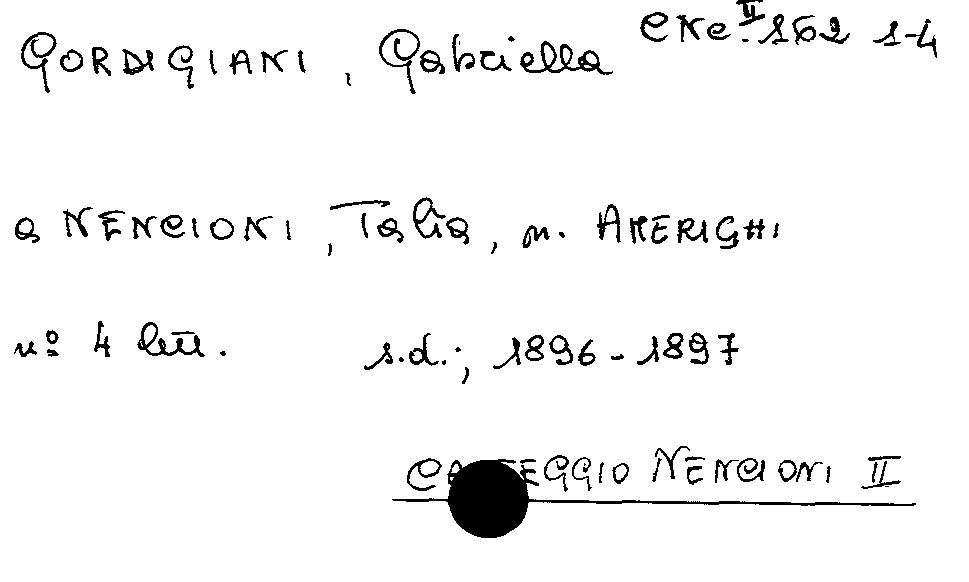 GORDIGIANI, Gabriella CNe.II.162 1-4
a NENCIONI, Talia, n. AMERIGHI
nº 4 lett. s.d.; 1896-1897
CARTEGGIO NENCIONI II